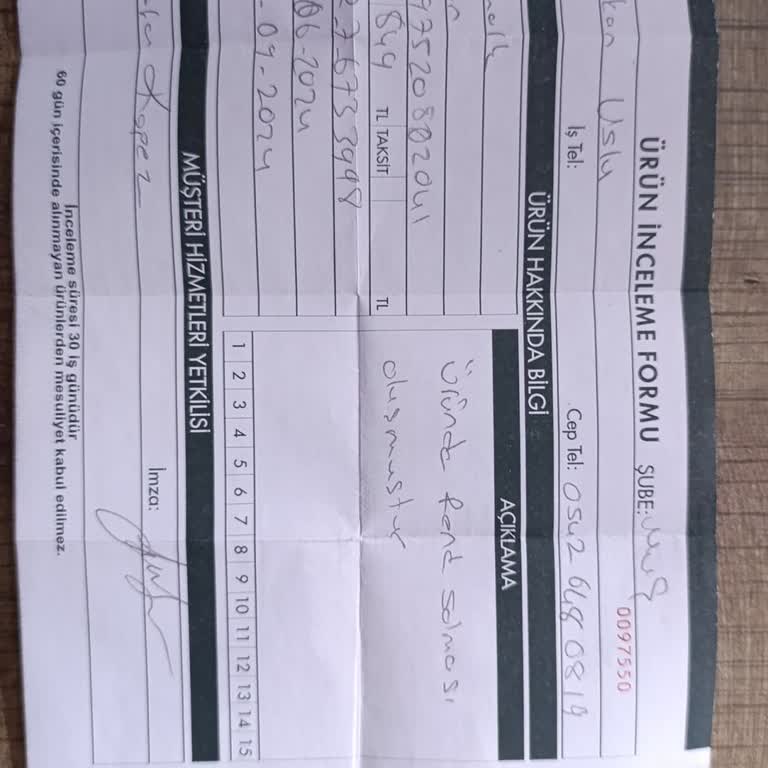 ÜRÜN İNCELEME FORMU ŞUBE:
0097550
kan Uslu
İş Tel: Cep Tel: 0542 648 0819
ÜRÜN HAKKINDA BİLGİ
AÇIKLAMA
Üründe Renk Solması
oluşmuştur
97520802041
849 TL TAKSİT TL
276733998
06-2024
- 09-2024
1 2 3 4 5 6 7 8 9 10 11 12 13 14 15
MÜŞTERİ HİZMETLERİ YETKİLİSİ
İmza:
İnceleme süresi 30 iş günüdür
60 gün içerisinde alınmayan ürünlerden mesuliyet kabul edilmez.